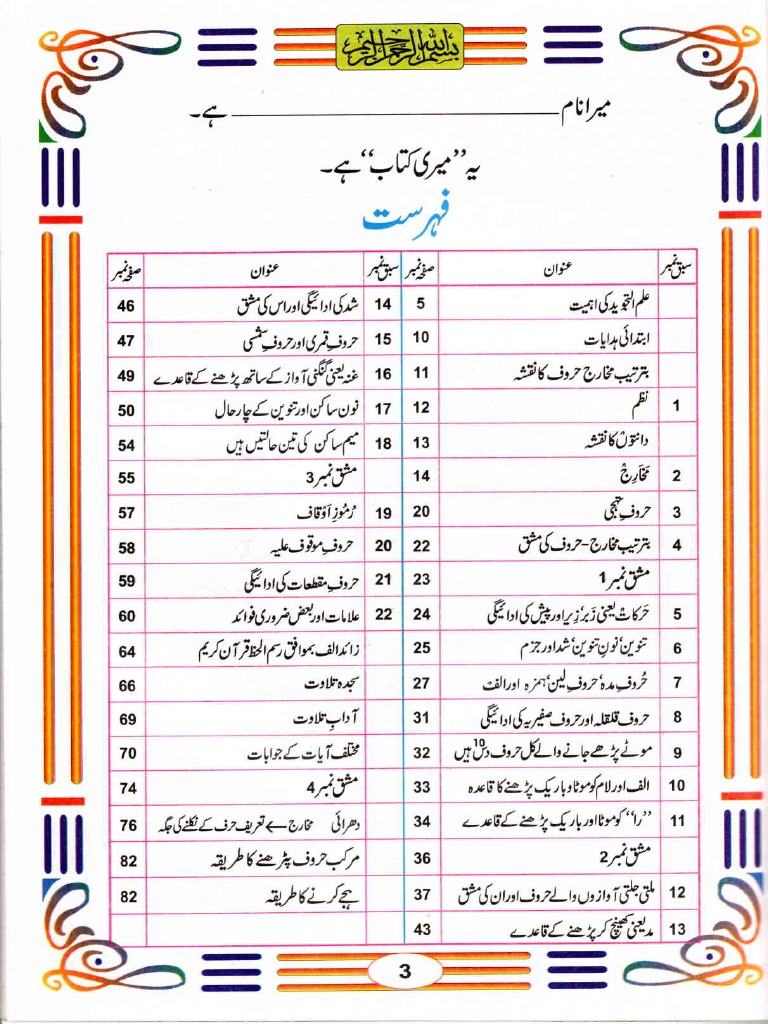 بسم اللہ الرحمن الرحیم
میرا نام ____________ ہے۔
یہ ”میری کتاب“ ہے۔
فہرست
سبق نمبر عنوان صفحہ نمبر
علم التجوید کی اہمیت 5
ابتدائی ہدایات 10
بترتیب مخارج حروف کا نقشہ 11
1 نظم 12
دانتوں کا نقشہ 13
2 مَخَارِجْ 14
3 حروفِ تہجی 20
4 بترتیب مخارج-حروف کی مشق 22
مشق نمبر 1 23
5 حَرکاتْ یعنی زَبر، زِیر اور پیش کی ادائیگی 24
6 تنوین، نونِ تنوین، شد اور جزم 25
7 حُروفِ مدہ، حروفِ لین، ہمزہ اور الف 27
8 حروف قلقلہ اور حروف صفیریہ کی ادائیگی 31
9 موٹے پڑھے جانے والے کل حروف دس 10 ہیں 32
10 الف اور لام کو موٹا و باریک پڑھنے کا قاعدہ 33
11 ”را“ کو موٹا اور باریک پڑھنے کے قاعدے 34
مشق نمبر 2 36
12 ملتی جلتی آوازوں والے حروف اور ان کی مشق 37
13 مد یعنی کھینچ کر پڑھنے کے قاعدے 43
سبق نمبر عنوان صفحہ نمبر
14 شد کی ادائیگی اور اس کی مشق 46
15 حروفِ قمری اور حروفِ شمسی 47
16 غنہ یعنی گنگنی آواز کے ساتھ پڑھنے کے قاعدے 49
17 نون ساکن اور تنوین کے چار حال 50
18 میم ساکن کی تین حالتیں ہیں 54
مشق نمبر 3 55
19 رُمُوزِ اَوْقاف 57
20 حروفِ موقوف علیہ 58
21 حروفِ مقطعات کی ادائیگی 59
22 علامات اور بعض ضروری فوائد 60
زائد الف بموافق رسم الخط قرآن کریم 64
سجدہ تلاوت 66
آدابِ تلاوت 69
مختلف آیات کے جوابات 70
مشق نمبر 4 74
دھرائی مخارج ← تعریف حرف کے نکلنے کی جگہ 76
مرکب حروف پڑھنے کا طریقہ 82
ہجے کرنے کا طریقہ 82
3